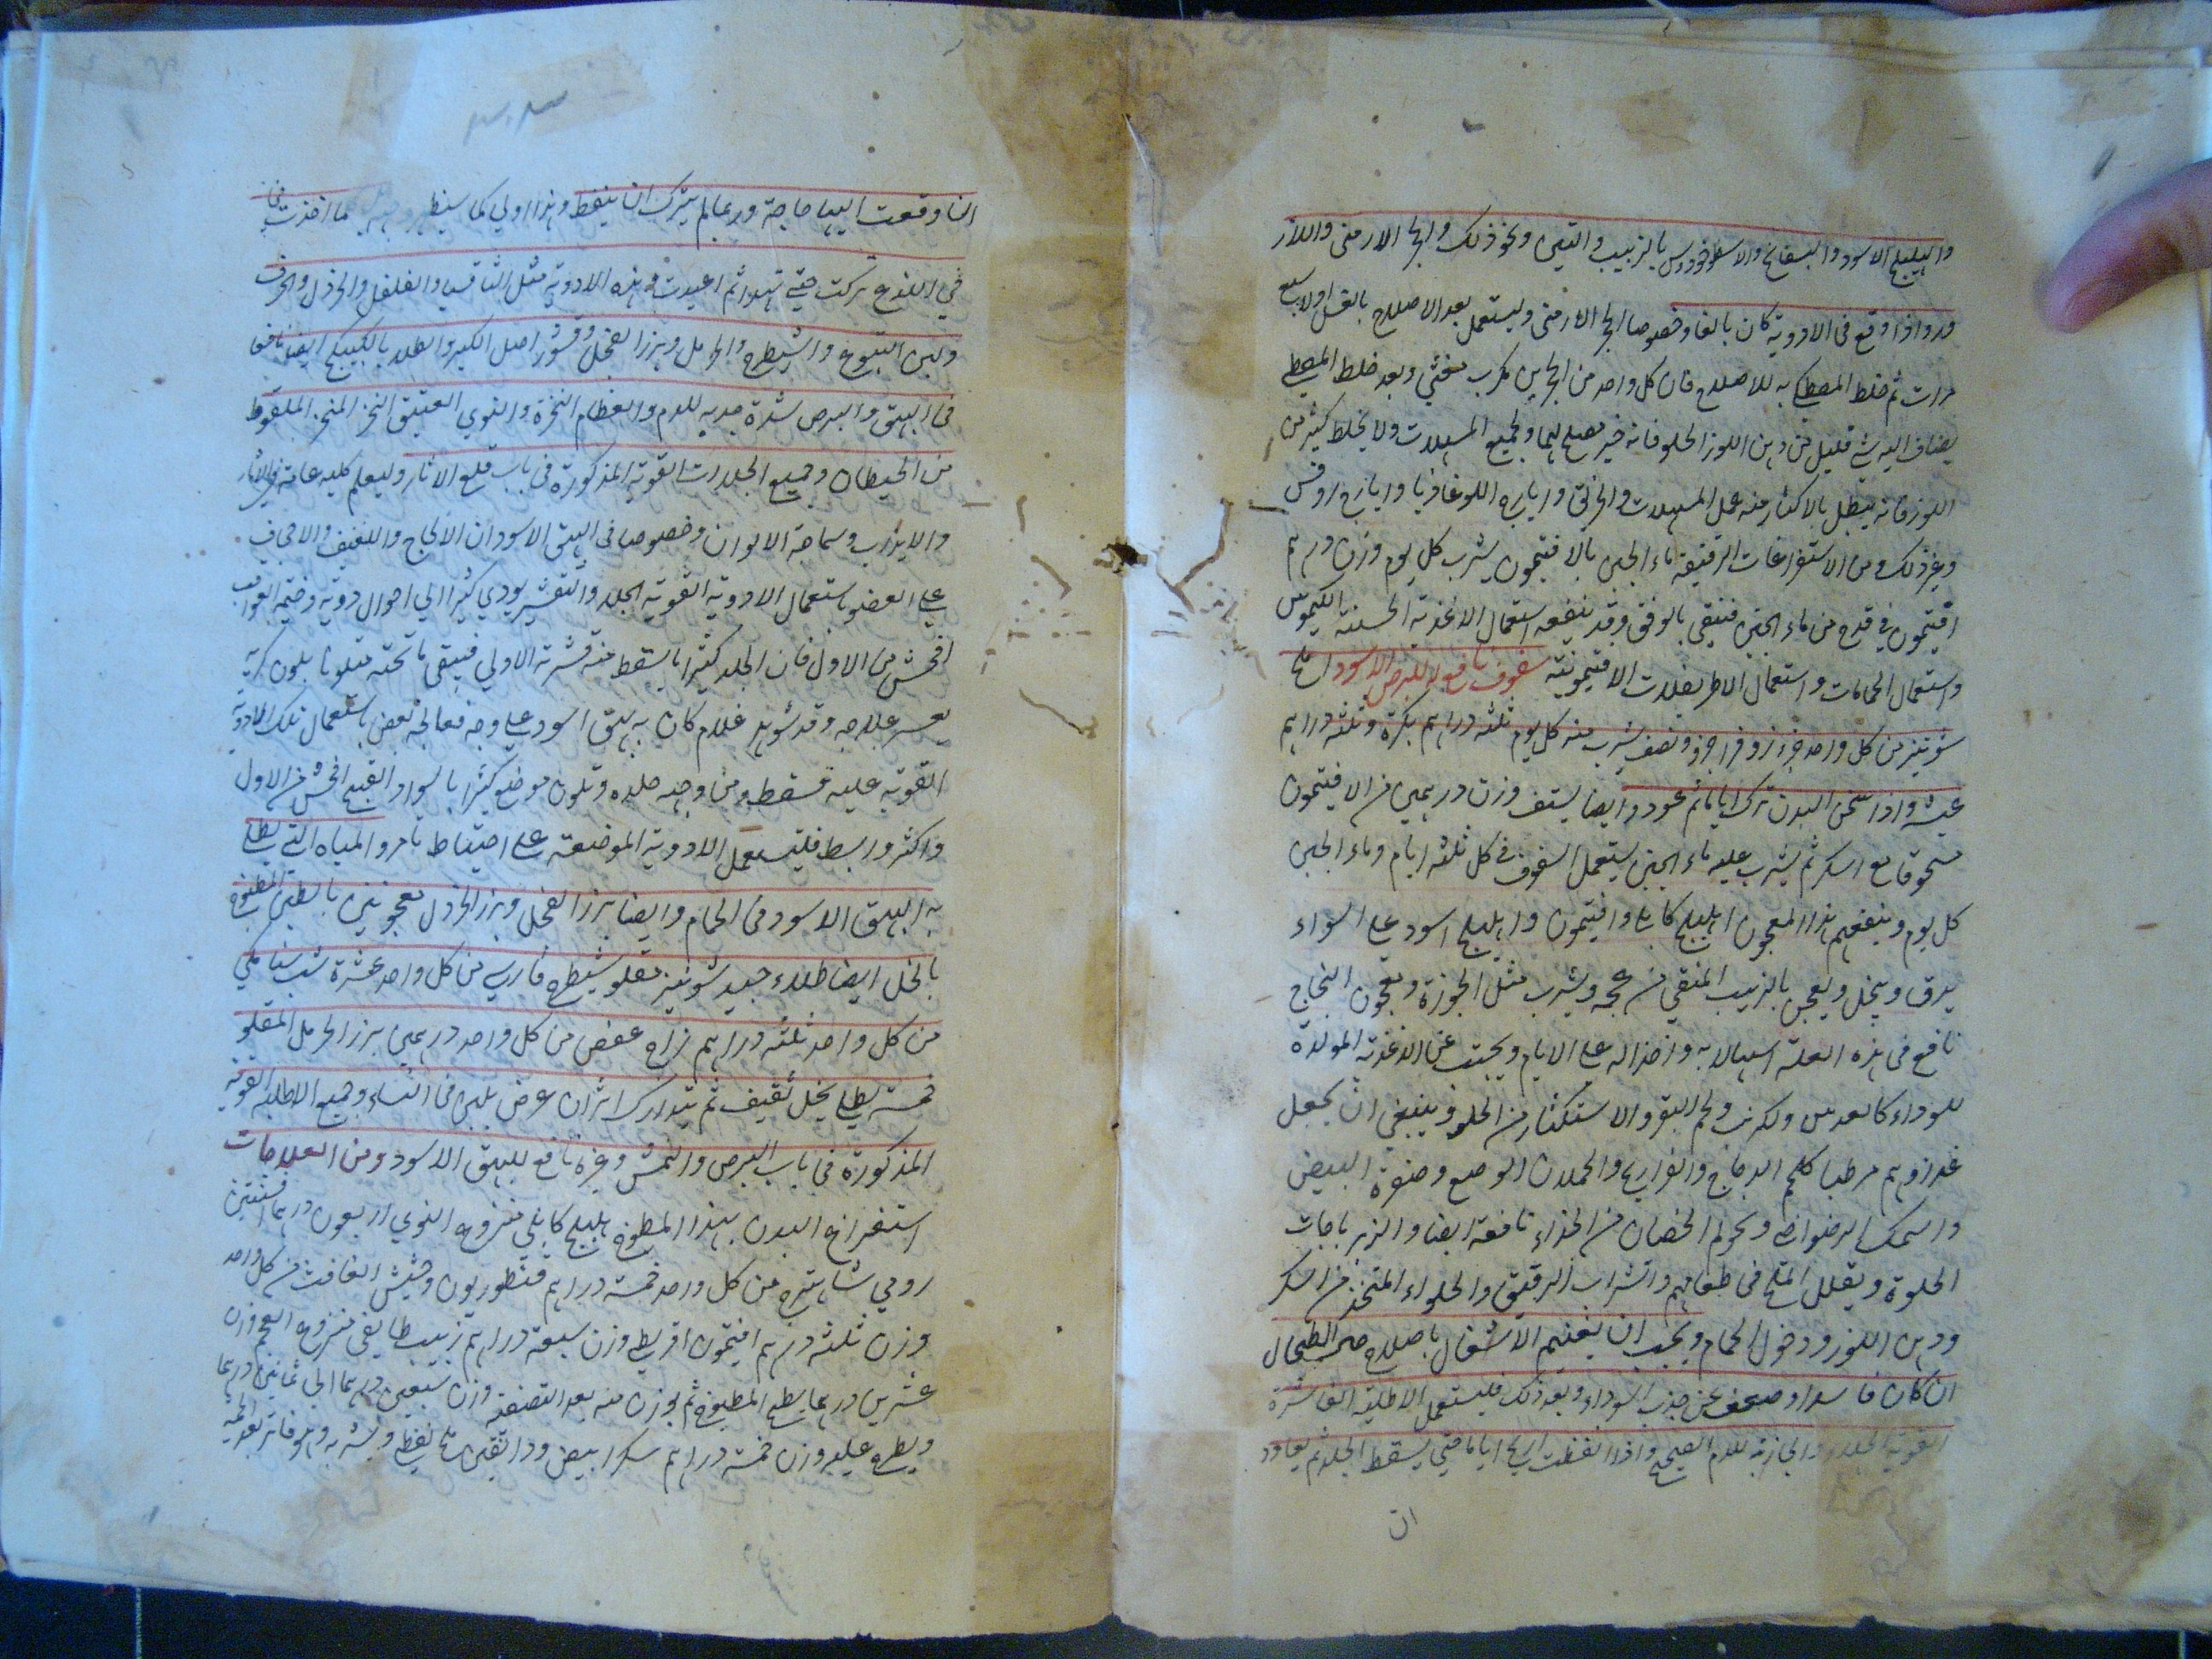 والهليلج الاسود والبسفايج والاسطوخودوس بالزبيب والتين ونحو ذلك والحجر الارمنى واللازور
ورد واذا وقع فى الادوية كان بالغا وخصوصا الحجر الارمنى وليستعمل بعد الاصلاح بالغسل اولا سبع
مرات ثم خلط المصطكى به للاصلاح فان كل واحد من الحجرين مكرب مغثى وبعد خلط المصطكى
يضاف اليه شئ قليل من دهن اللوز الحلو فانه خير مصلح لهما ولجميع المسهلات ولا يخلط كثير من
اللوز فانه يبطل بالاكثار منه عمل المسهلات والخربق وايارج اللوغاذيا وايارج روفس
وغير ذلك ومن الاستفراغات الرقيقة ماء الجبن بالافتيمون يشرب كل يوم وزن درهم
افتيمون فى قدح من ماء الجبن فينقى بالرفق وقد ينفعه استعمال الاغذية الحسنة الكيموس
واستعمال الحمامات واستعمال الاطريفلات الافتيمونية سفوف نافع للبرص الاسود
شونيز من كل واحد جزء زوفرا جزء ونصف يشرب منه كل يوم ثلثة دراهم بكرة وثلثة دراهم
عشية واذا سخن البدن ترك اياما ثم عود وايضا يستف وزن درهمين من الافتيمون
مسحوقا مع السكر ثم يشرب عليه ماء الجبن يستعمل السفوف فى كل ثلثة ايام وماء الجبن
كل يوم وينفعهم هذا المعجون اهليلج كابلى وافتيمون واهليلج اسود على السواء
يدق وينخل ويعجن بالزبيب المنقى من عجمه ويشرب مثل الجوزة ومعجون النجاح
نافع فى هذه العلة اسهالا به واخذا له على الايام ويجتنب عن الاغذية المولدة
للسوداء كالعدس ولكرنب ولحم البقر والاستكثار من الحلو وينبغى ان يجعل
غذاؤهم مرطبا كلحم الدجاج والفراريج والحملان الرضع وصفرة البيض
والسمك الرضراضى ولحوم الخصيان من الجداء نافعة ايضا والزيرباجات
الحلوة ويقلل الملح فى طعامهم والشراب الرقيق والحلواء المتخذ من السكر
ودهن اللوز ودخول الحمام ويجب ان يغنيهم الاشتغال باصلاح الطحال
ان كان فاسدا وضعف عن جذب السوداء وبعد ذلك فليستعمل الاطلية القاشرة
القوية الجلاء والجاذبة للدم الصحيح واذا تنفطت اريح اياما حتى يسقط الجلد ثم يعاود
ان
ان وقعت اليها حاجة وربما لم يترك ان ينفط وهذا اولى كما سيظهر كما اخذت
فى اللذع تركت حتى تهدا ثم اعيدت هذه الادوية مثل الثافسيا والفلفل والخردل والحرف
ولبن اليتوع والشيطرج والحرمل وبزر الفجل وقشور اصل الكبر والطلاء بالكبيكج ايضا نافع
فى البهق والبرص لشدة جذبه للدم والعظام النخرة والنوى العتيق النخر المنخر الملقوط
من الحيطان وجميع الجلاءات القوية المذكورة فى باب قلع الاثار وليعلم كلية عامة فى الاثار
والابدان وسماجة الالوان وخصوصا فى البهق الاسود ان الالحاح والتعنيف والاجحاف
على العضو باستعمال الادوية القوية الجلاء والتقشير يودى كثيرا الى احوال ردية وخيمة العواقب
افحش من الاول فان الجلد كثيرا ما يسقط منه قشرته الاولى فيبقى ما تحته متلونا بلون كريه
يعسر علاجه وقد شوهد غلام كان به بهق اسود على وجهه فعالجه بعض باستعمال تلك الادوية
القوية عليه فسقط من وجهه جلده وتلون موضع كثير بالسواد القبيح افحش من الاول
واكثر وابسط فليستعمل الادوية الموضعية على احتياط تام والمياه التى يطلى
به البهق الاسود فى الحمام وايضا بزر الفجل وبزر الخردل معجونين بالطين المطبوخ
بالخل ايضا طلاء جيد شونيز مقلو شيطرج فارسى من كل واحد عشرة شب سنا مكى
من كل واحد ثلثة دراهم زاج عفص من كل واحد درهمين بزر الحرمل المقلو
خمسة يطلى بخل ثقيف ثم يتدارك اثر ان عرض بلبن فى النساء وجميع الاطلية القوية
المذكورة فى باب البرص والنمش وغيره نافع للبهق الاسود ومن العلاجات
استفراغ البدن بهذا المطبوخ هليلج كابلى منزوع النوى اربعون درهما افسنتين
رومى شاهترج من كل واحد خمسة دراهم قنطوريون وحشيش الغافث من كل واحد
وزن ثلثة درهم افتيمون اقريطى وزن سبعة دراهم زبيب طايفى منزوع العجم وزن
عشرين درهما يطبخ المطبوخ ثم يوزن منه بعد التصفية وزن سبعين درهما الى ثمانين درهما
ويطرح عليه وزن خمسة دراهم سكر ابيض ودانقين ملح نفطى ويشربه وهو فاتر بعد الحمية